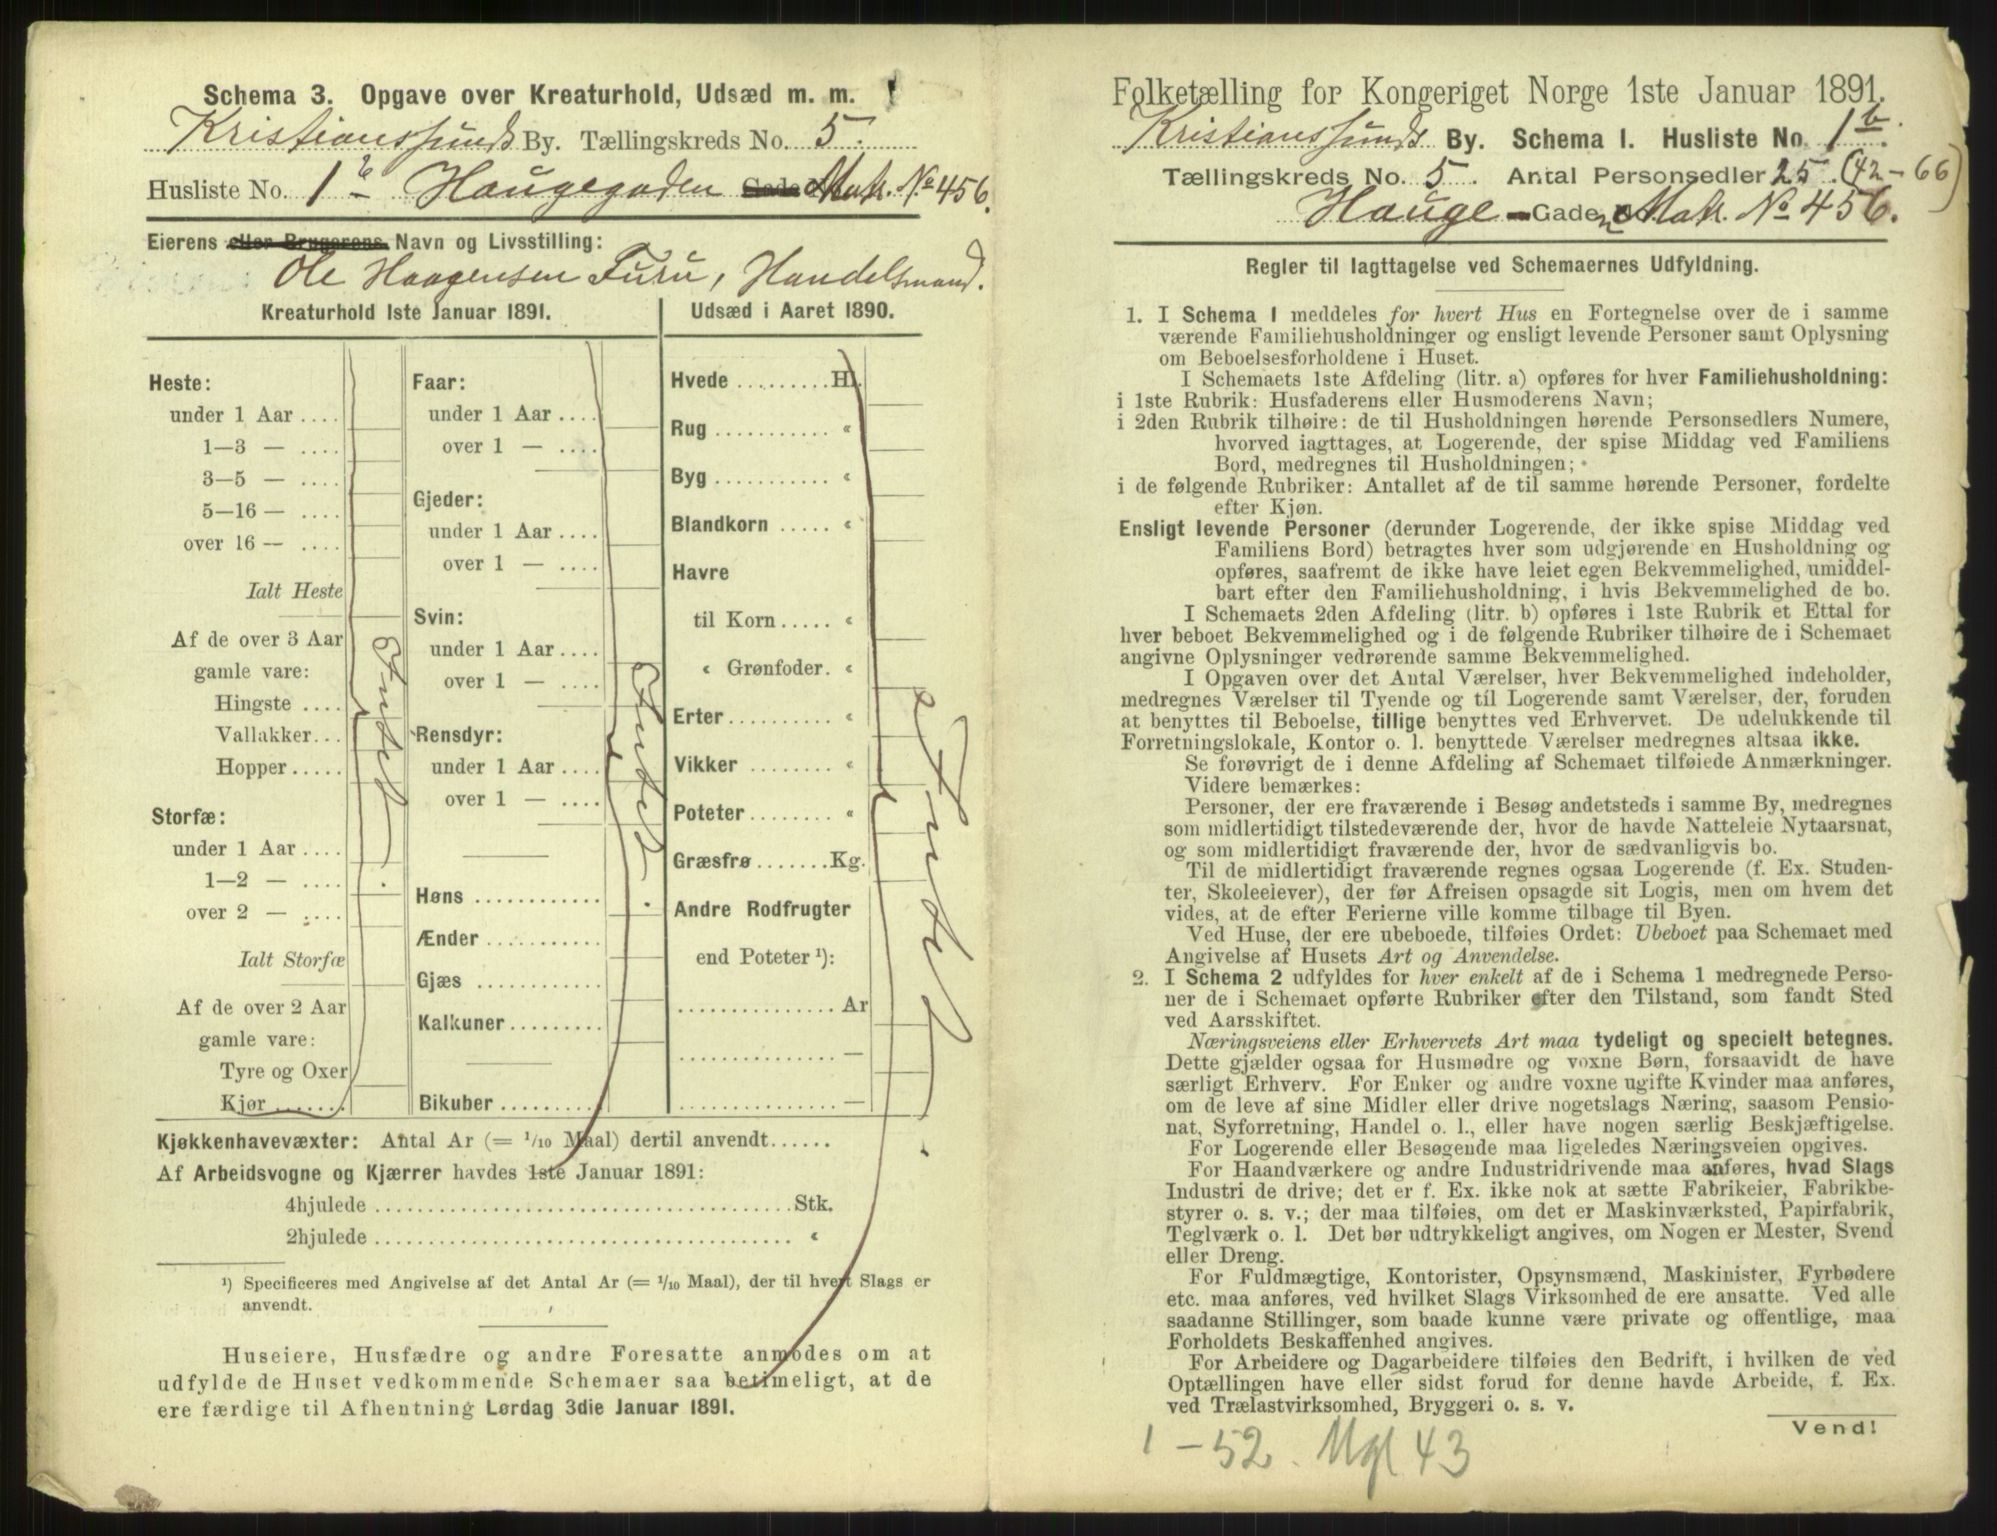 Schema 3. Opgave over Kreaturhold, Udsæd m. m.
Kristianssunds By. Tællingskreds No. 5.
Husliste No. 1b Haugegaden Gade No. Matr. No 456.
Eierens eller Brugerens Navn og Livsstilling:
Ole Haagensen Furu, Handelsmand.
Kreaturhold 1ste Januar 1891.
Heste:
under 1 Aar ....
1—3 — ....
3—5 — ....
5—16 — ....
over 16 — ....
Ialt Heste
Af de over 3 Aar
gamle vare:
Hingste ....
Vallakker...
Hopper.....
Storfæ:
under 1 Aar ....
1—2 — ....
over 2 — ....
Ialt Storfæ
Af de over 2 Aar
gamle vare:
Tyre og Oxer
Kjør .......
Intet.
Faar:
under 1 Aar ....
over 1 — ....
Gjeder:
under 1 Aar ....
over 1 — ....
Svin:
under 1 Aar ....
over 1 — ....
Rensdyr:
under 1 Aar ....
over 1 — ....
Høns ............
Ænder ...........
Gjæs ............
Kalkuner.........
Bikuber ..........
Intet.
Udsæd i Aaret 1890.
Hvede .........Hl.
Rug ........... «
Byg ........... «
Blandkorn ..... «
Havre
til Korn ..... «
« Grønfoder. «
Erter ......... «
Vikker ........ «
Poteter ........ «
Græsfrø .......Kg.
Andre Rodfrugter
end Poteter ¹):
............... Ar
............... —
............... —
Intet.
Kjøkkenhavevæxter: Antal Ar (= 1/10 Maal) dertil anvendt......
Af Arbeidsvogne og Kjærrer havdes 1ste Januar 1891:
4hjulede .....................................Stk.
2hjulede ..................................... «
¹) Specificeres med Angivelse af det Antal Ar (= 1/10 Maal), der til hvert Slags er
anvendt.
Huseiere, Husfædre og andre Foresatte anmodes om at
udfylde de Huset vedkommende Schemaer saa betimeligt, at de
ere færdige til Afhentning Lørdag 3die Januar 1891.
Folketælling for Kongeriget Norge 1ste Januar 1891.
Kristianssunds By. Schema I. Husliste No. 1b.
Tællingskreds No. 5. Antal Personsedler 25 (42-66)
Hauge-Gaden Matr. No 456.
Regler til Iagttagelse ved Schemaernes Udfyldning.
1. I Schema 1 meddeles for hvert Hus en Fortegnelse over de i samme
værende Familiehusholdninger og ensligt levende Personer samt Oplysning
om Beboelsesforholdene i Huset.
I Schemaets 1ste Afdeling (litr. a) opføres for hver Familiehusholdning:
i 1ste Rubrik: Husfaderens eller Husmoderens Navn;
i 2den Rubrik tilhøire: de til Husholdningen hørende Personsedlers Numere,
hvorved iagttages, at Logerende, der spise Middag ved Familiens
Bord, medregnes til Husholdningen;
i de følgende Rubriker: Antallet af de til samme hørende Personer, fordelte
efter Kjøn.
Ensligt levende Personer (derunder Logerende, der ikke spise Middag ved
Familiens Bord) betragtes hver som udgjørende en Husholdning og
opføres, saafremt de ikke have leiet egen Bekvemmelighed, umiddel-
bart efter den Familiehusholdning, i hvis Bekvemmelighed de bo.
I Schemaets 2den Afdeling (litr. b) opføres i 1ste Rubrik et Ettal for
hver beboet Bekvemmelighed og i de følgende Rubriker tilhøire de i Schemaet
angivne Oplysninger vedrørende samme Bekvemmelighed.
I Opgaven over det Antal Værelser, hver Bekvemmelighed indeholder,
medregnes Værelser til Tyende og til Logerende samt Værelser, der, foruden
at benyttes til Beboelse, tillige benyttes ved Erhvervet. De udelukkende til
Forretningslokale, Kontor o. l. benyttede Værelser medregnes altsaa ikke.
Se forøvrigt de i denne Afdeling af Schemaet tilføiede Anmærkninger.
Videre bemærkes:
Personer, der ere fraværende i Besøg andetsteds i samme By, medregnes
som midlertidigt tilstedeværende der, hvor de havde Natteleie Nytaarsnat,
og som midlertidigt fraværende der, hvor de sædvanligvis bo.
Til de midlertidigt fraværende regnes ogsaa Logerende (f. Ex. Studen-
ter, Skoleelever), der før Afreisen opsagde sit Logis, men om hvem det
vides, at de efter Ferierne ville komme tilbage til Byen.
Ved Huse, der ere ubeboede, tilføies Ordet: Ubeboet paa Schemaet med
Angivelse af Husets Art og Anvendelse.
2. I Schema 2 udfyldes for hver enkelt af de i Schema 1 medregnede Perso-
ner de i Schemaet opførte Rubriker efter den Tilstand, som fandt Sted
ved Aarsskiftet.
Næringsveiens eller Erhvervets Art maa tydeligt og specielt betegnes.
Dette gjælder ogsaa for Husmødre og voxne Børn, forsaavidt de have
særligt Erhverv. For Enker og andre voxne ugifte Kvinder maa anføres,
om de leve af sine Midler eller drive nogetslags Næring, saasom Pensio-
nat, Syforretning, Handel o. l., eller have nogen særlig Beskjæftigelse.
For Logerende eller Besøgende maa ligeledes Næringsveien opgives.
For Haandværkere og andre Industridrivende maa anføres, hvad Slags
Industri de drive; det er f. Ex. ikke nok at sætte Fabrikeier, Fabrikbe-
styrer o. s. v.; der maa tilføies, om det er Maskinværksted, Papirfabrik,
Teglværk o. l. Det bør udtrykkeligt angives, om Nogen er Mester, Svend
eller Dreng.
For Fuldmægtige, Kontorister, Opsynsmænd, Maskinister, Fyrbødere
etc. maa anføres, ved hvilket Slags Virksomhed de ere ansatte. Ved alle
saadanne Stillinger, som baade kunne være private og offentlige, maa
Forholdets Beskaffenhed angives.
For Arbeidere og Dagarbeidere tilføies den Bedrift, i hvilken de ved
Optællingen have eller sidst forud for denne havde Arbeide, f. Ex.
ved Trælastvirksomhed, Bryggeri o. s. v.
Vend!
1 - 52. Mgl 43